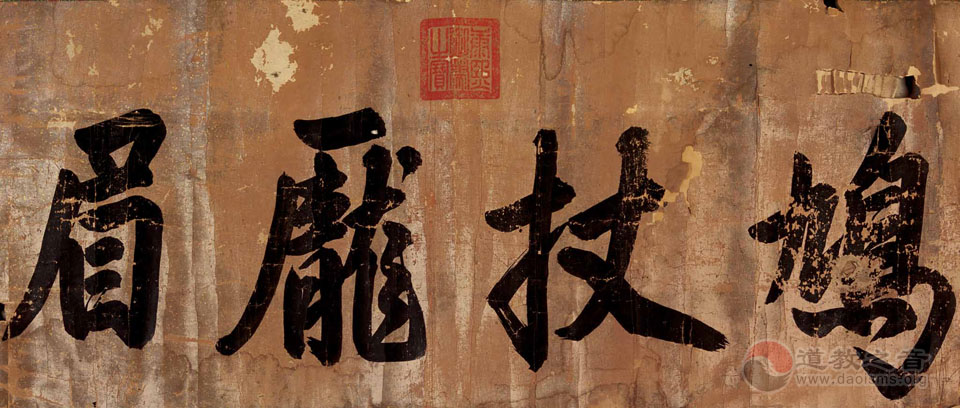 鳩杖龎眉
康熙
御筆
之寶
道教之音
www.daoisms.org